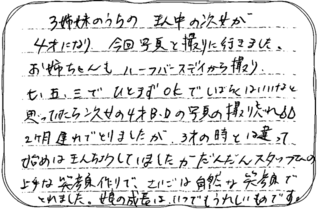 3姉妹のうちの 真ん中の次女が
4才になり 今回写真を撮りに行きました。
お姉ちゃんも ハーフバースデイから撮り
七、五、三で ひとまずOKで しばらくはいいなと
思ってたら 次女の4才B.Dの写真の撮り忘れ
2ヶ月遅れでとりましたが、3才の時とは違って
始めはきんちょうしていましたがだんだんスタッフさんの
上手な笑顔作りで、さいごは自然な笑顔で
とれました。娘の成長は、いつでもうれしいものです。